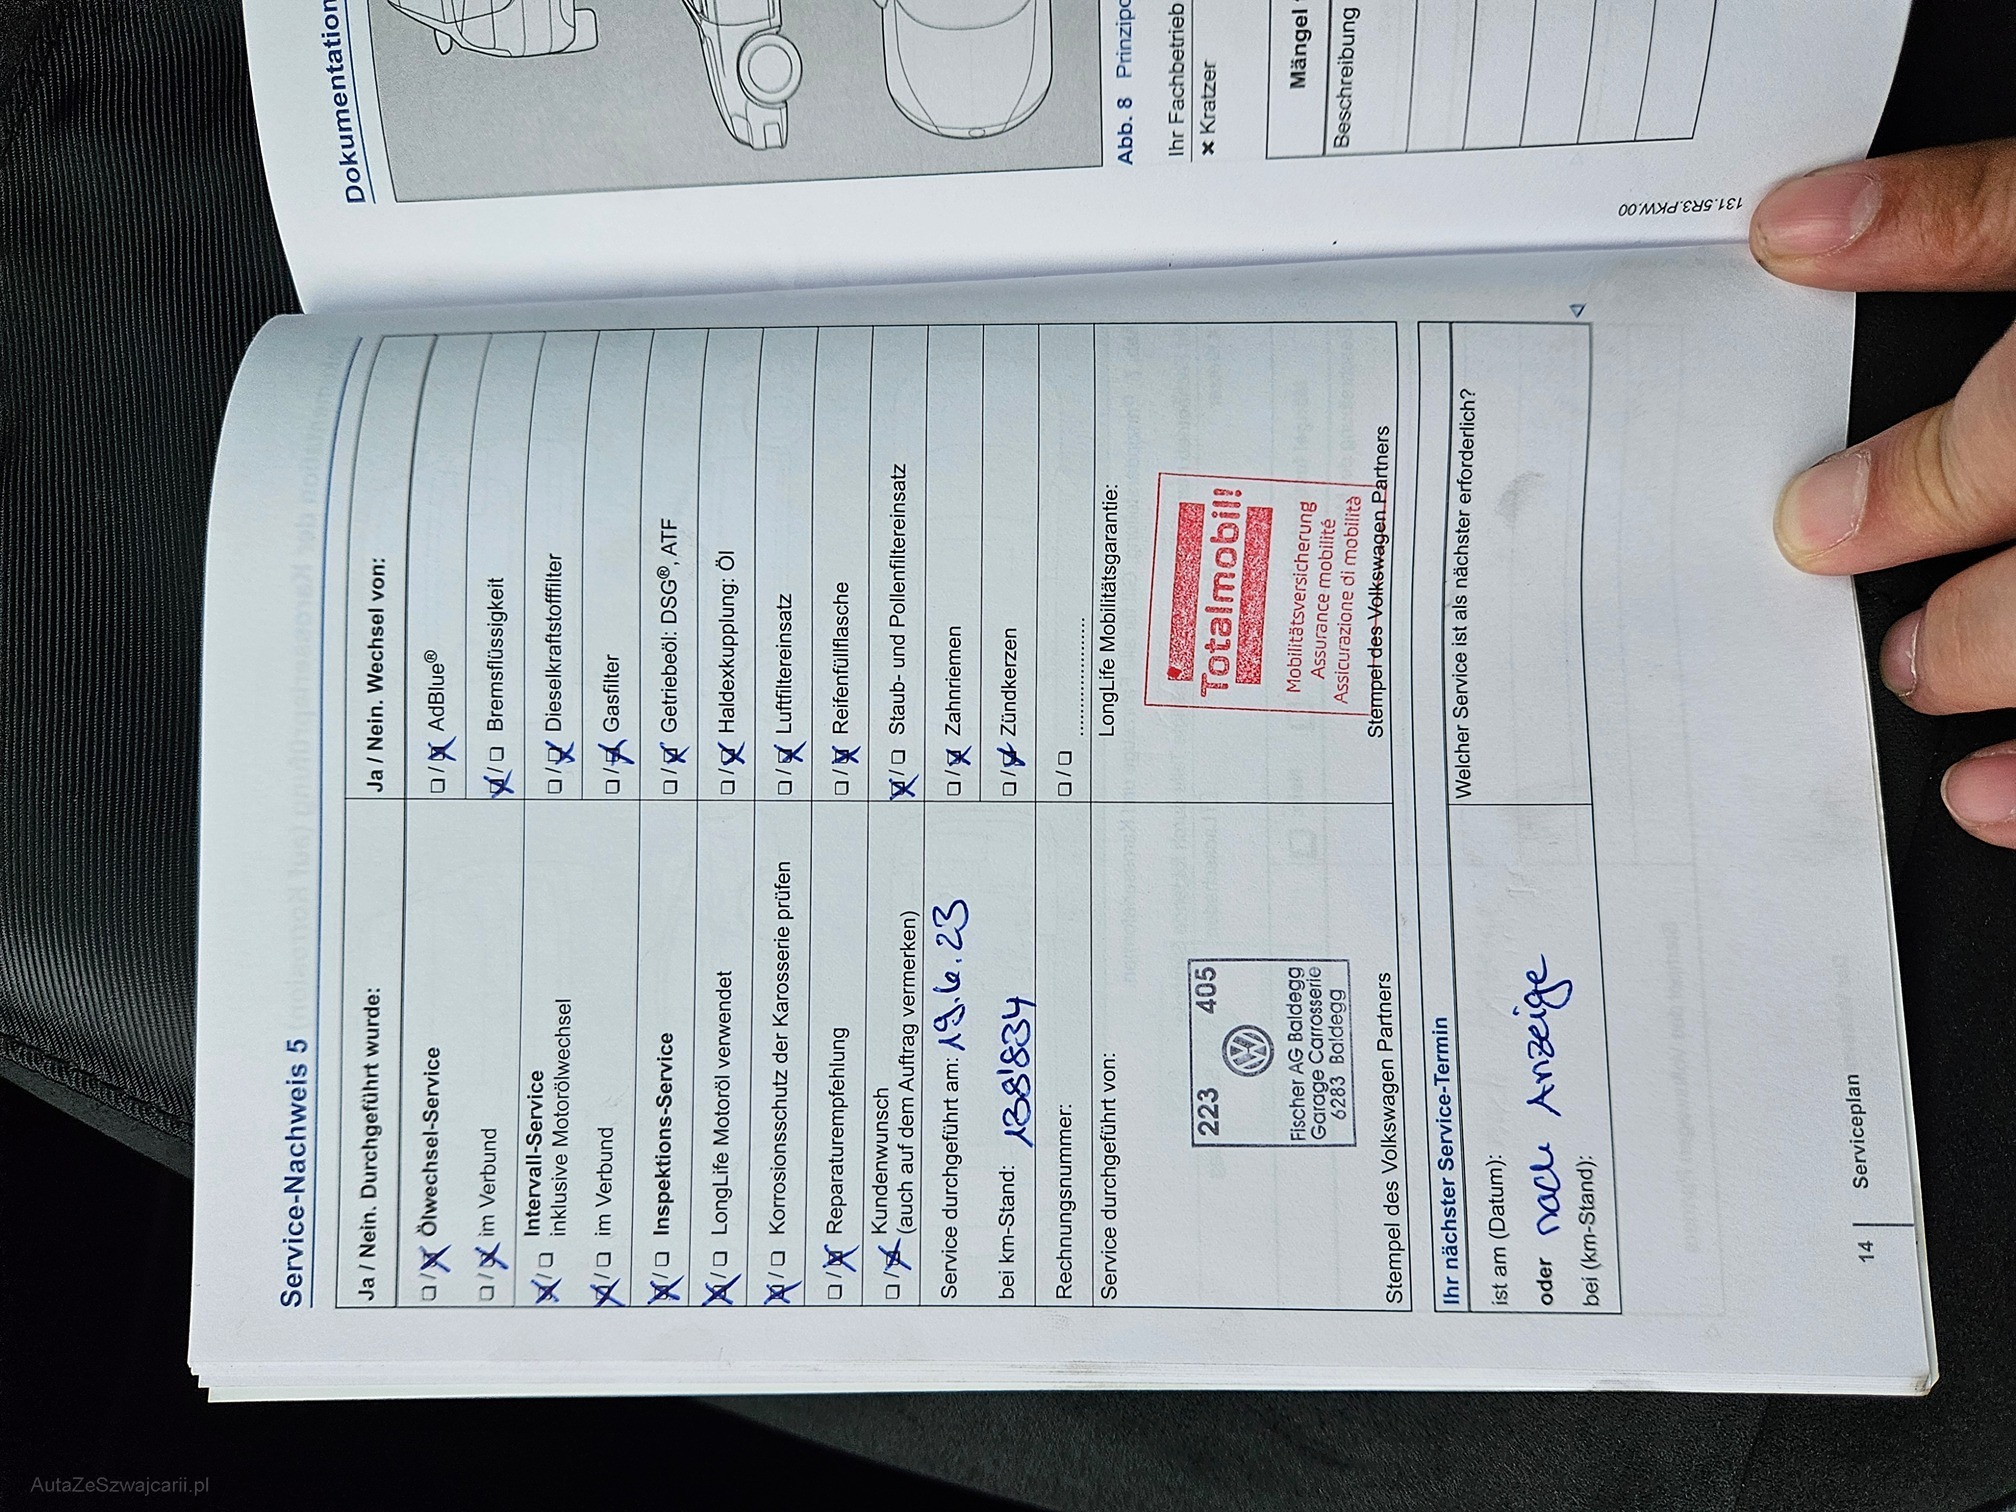 Service-Nachweis 5
Ja / Nein. Durchgeführt wurde:
Ölwechsel-Service
im Verbund
Intervall-Service
inklusive Motorölwechsel
im Verbund
Inspektions-Service
LongLife Motoröl verwendet
Korrosionsschutz der Karosserie prüfen
Reparaturempfehlung
Kundenwunsch
(auch auf dem Auftrag vermerken)
Service durchgeführt am: 19.6.23
bei km-Stand: 138'834
Rechnungsnummer:
Service durchgeführt von:
223 405
Fischer AG Baldegg
Garage Carrosserie
6283 Baldegg
Stempel des Volkswagen Partners
Ja / Nein. Wechsel von:
AdBlue®
Bremsflüssigkeit
Dieselkraftstofffilter
Gasfilter
Getriebeöl: DSG®, ATF
Haldexkupplung: Öl
Luftfiltereinsatz
Reifenfüllflasche
Staub- und Pollenfiltereinsatz
Zahnriemen
Zündkerzen
....................
LongLife Mobilitätsgarantie:
Totalmobil!
Mobilitätsversicherung
Assurance mobilité
Assicurazione di mobilità
Stempel des Volkswagen Partners
Ihr nächster Service-Termin
ist am (Datum):
oder nach Anzeige
bei (km-Stand):
Welcher Service ist als nächster erforderlich?
14 Serviceplan
Dokumentation
Abb. 8 Prinzip
Ihr Fachbetrieb
× Kratzer
Mängel
Beschreibung
131.5R3.PKW.00
AutaZeSzwajcarii.pl